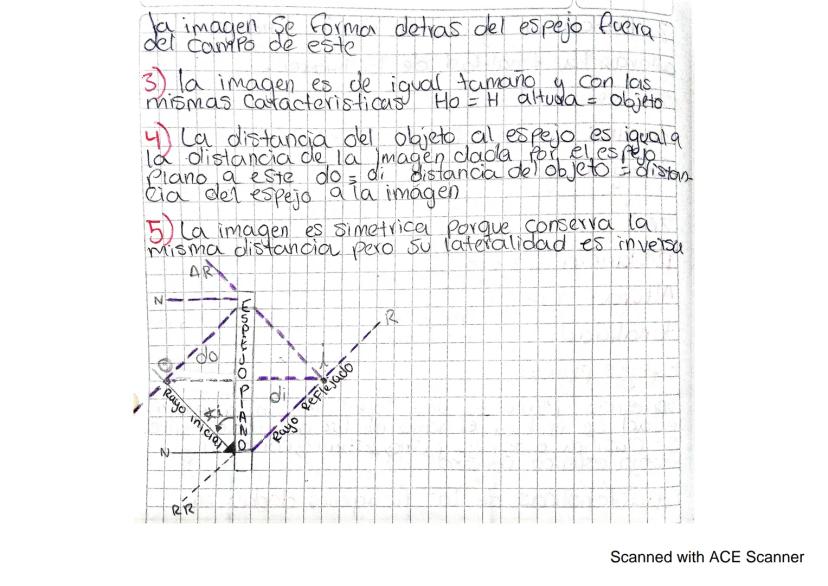 la imagen se forma detras del espejo fuera
del campo de este
3) la imagen es de igual tamaño y con las
mismas caracteristicas Ho = H altuda = objeto
4) La distancia del objeto al espejo es igual a
la distancia de la imagen dada por el espejo
plano a este do = di distancia del objeto = distan
cia del espejo a la imagen
5) La imagen es simetrica porque conserva la
misma distancia pero su lateralidad es inversa
AR
N
ESPEJO PLANO
R
O
do
i
di
Rayo inicial
Rayo Reflejado
N
RR
Scanned with ACE Scanner